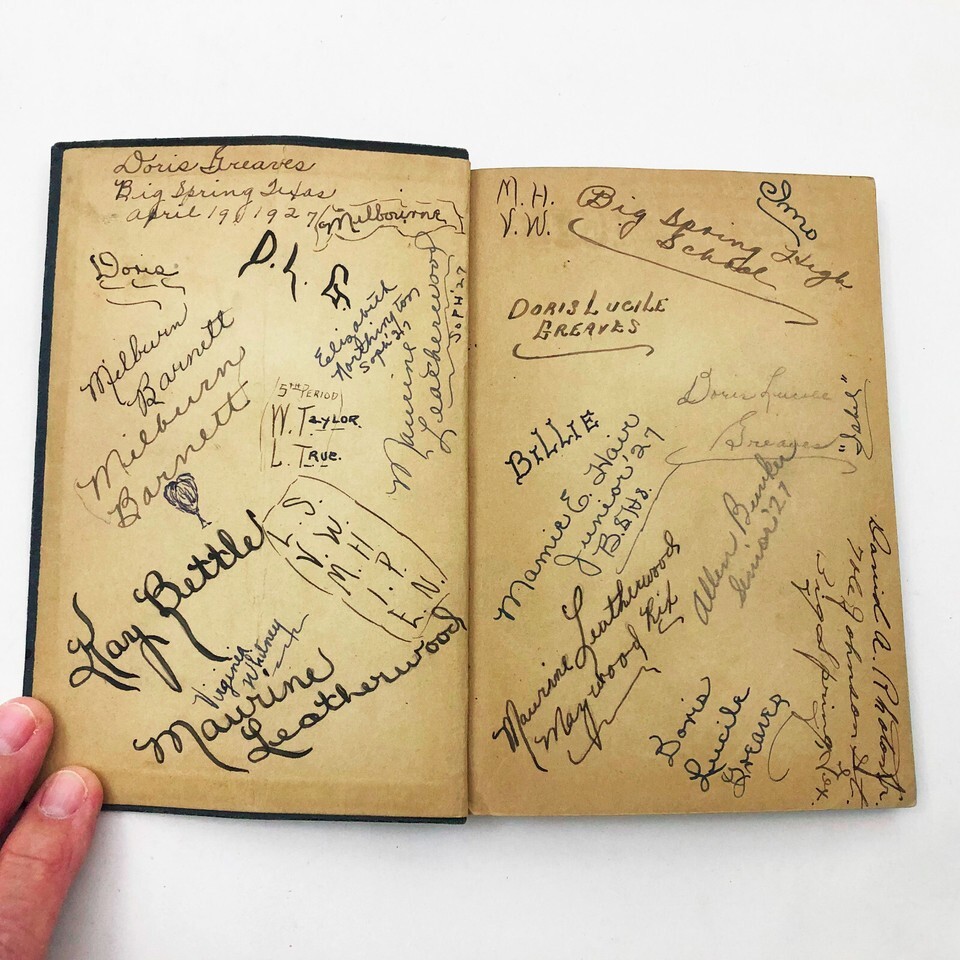 Doris Greaves
Big Spring Texas
April 19, 1927
Milbourne
Doris
D.L.
Elizabeth
Northington
Soph '27
Maurine
Leatherwood
SOPH '27
Milburn
Barnett
Milburn
Barnett
5TH PERIOD
W. TAYLOR.
L. TRUE.
L. S.
V. W.
M. H.
L. P.
E. N.
Kay Bettle
Virginia
Whitney
Maurine
Leatherwood
M. H.
V. W.
Big Spring High
School
Imo
DORIS LUCILE
GREAVES
Doris Lucile
Greaves
BILLIE
Mamie E. Hair
Junior '27
B.S.H.S.
Allen Bunker
Senior '27
Maurine Leatherwood
Rix
Maywood
Doris
Lucile
Greaves
Johnson St.
Big Spring, Tex.